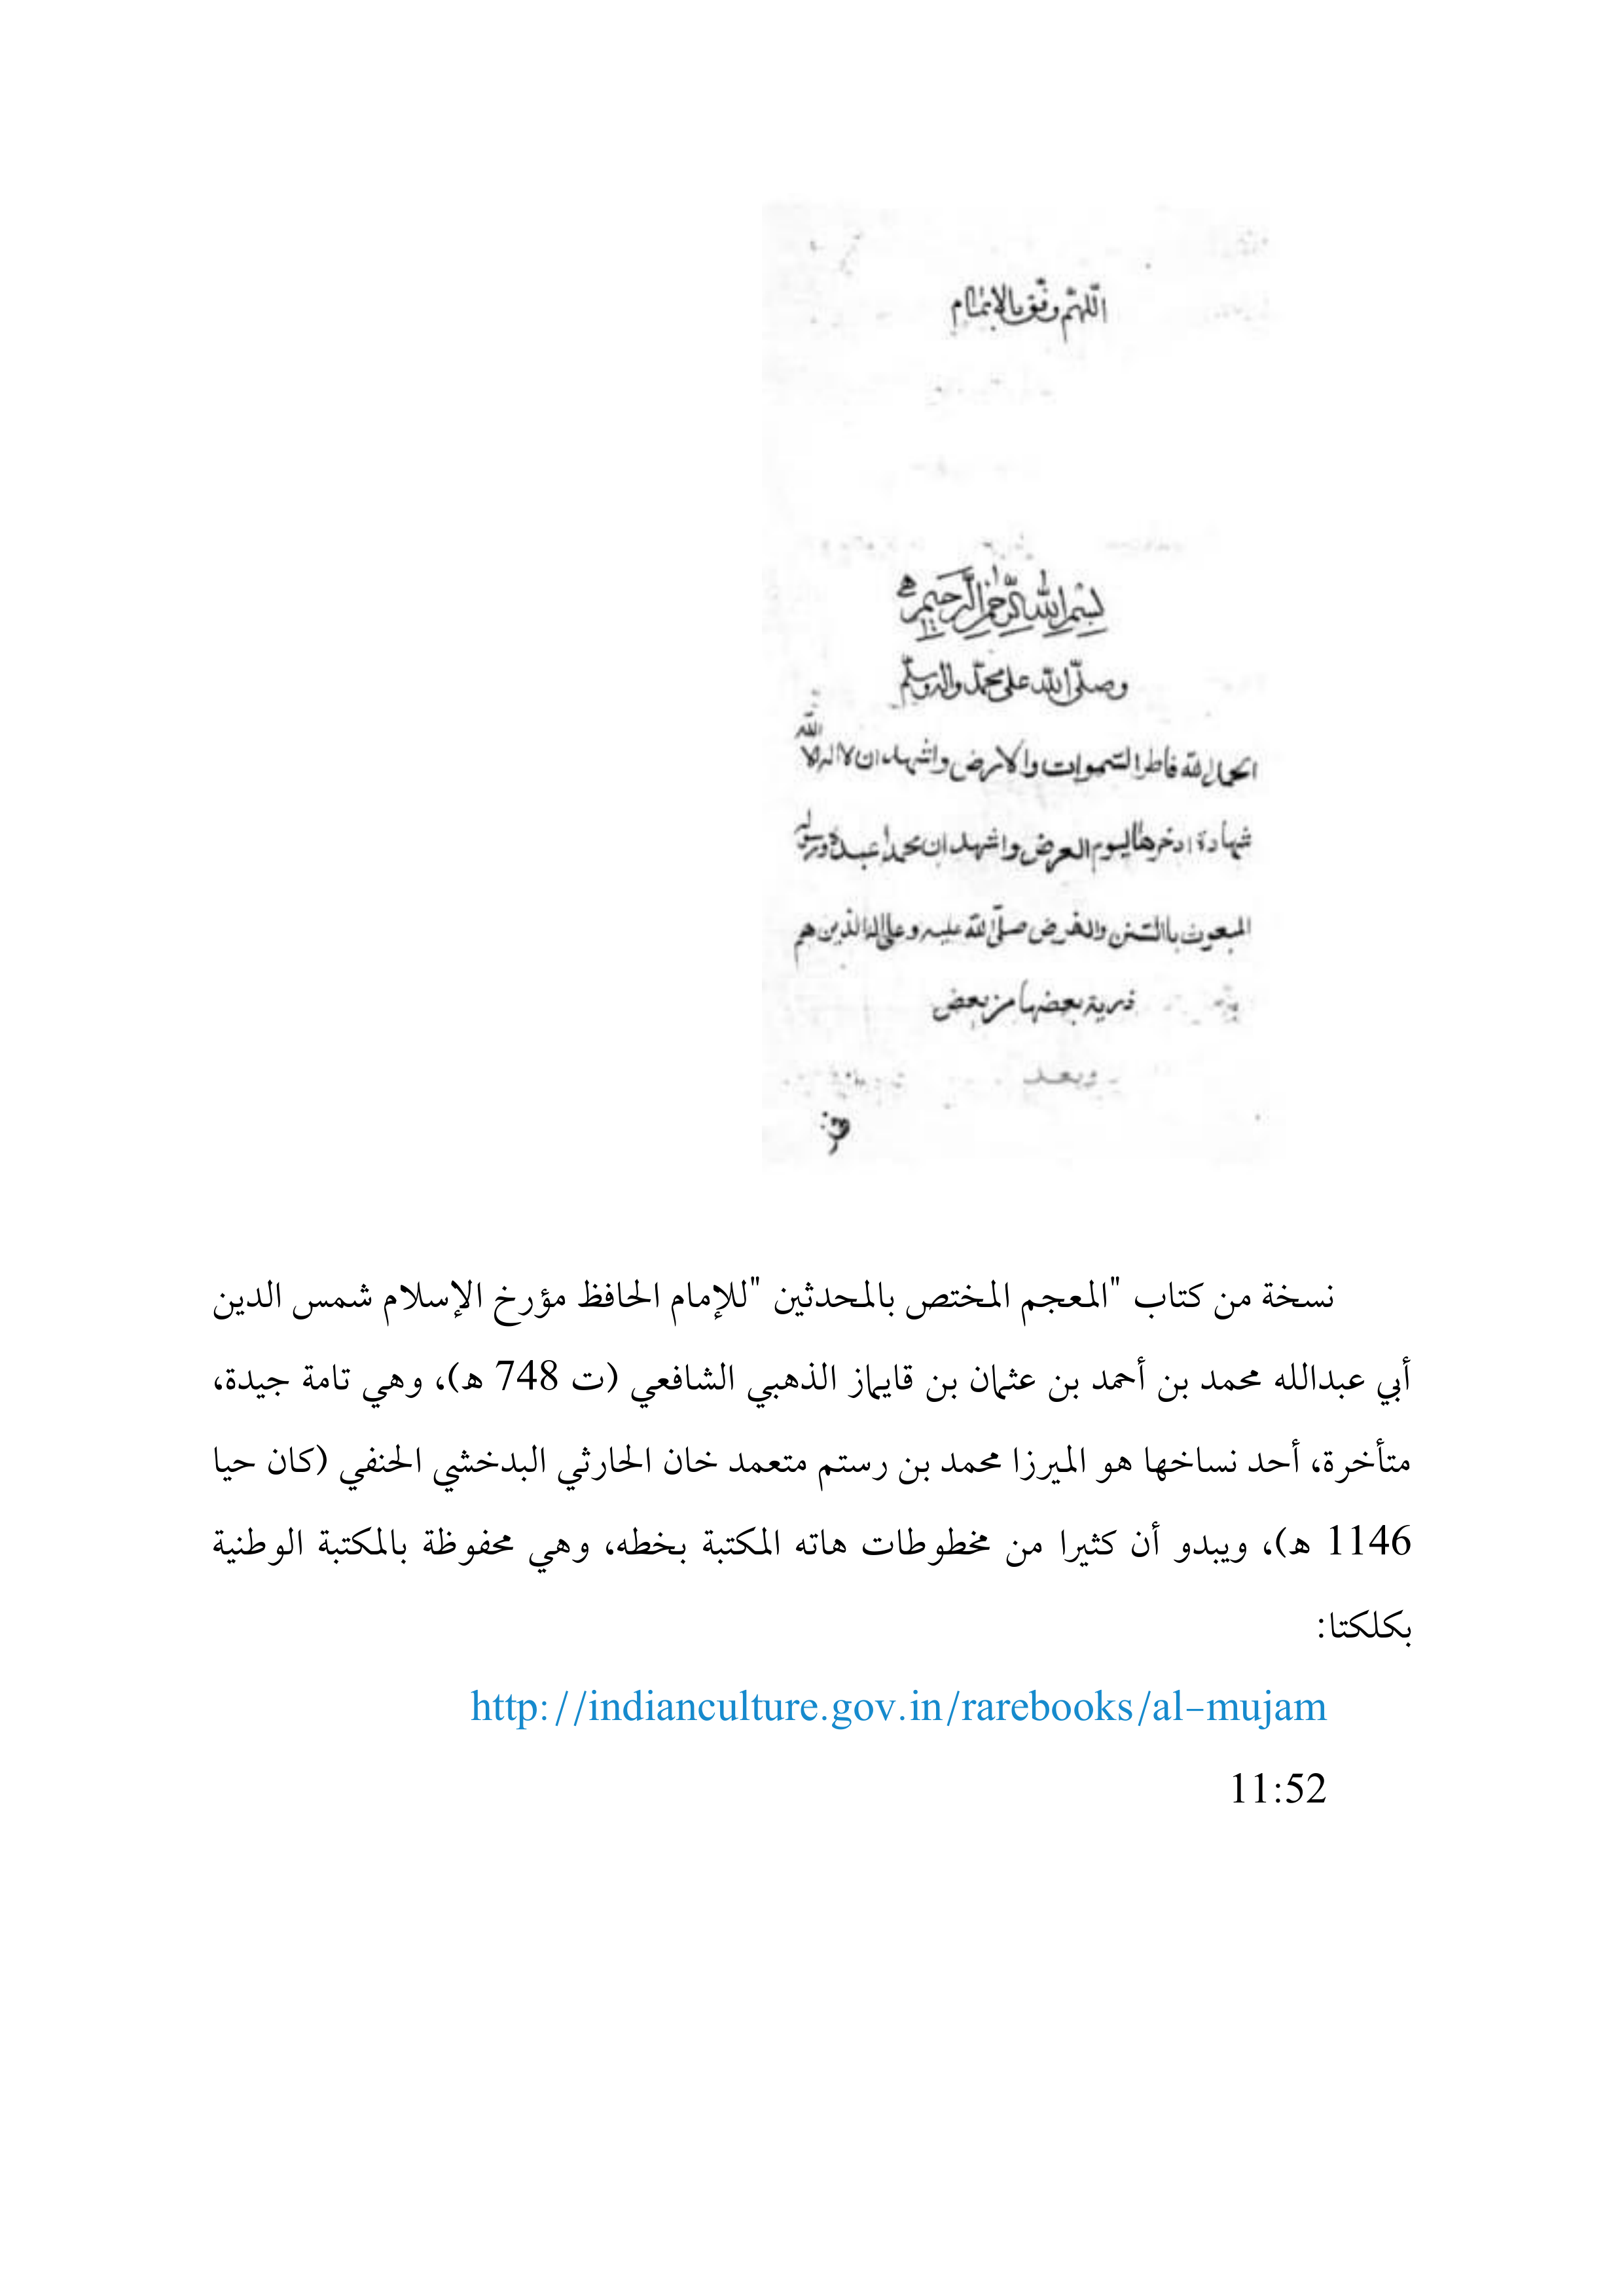 اللّهمّ وفّق بالاتمام
بسم الله الرّحمن الرّحيم
وصلّى الله على محمّد واله وسلّم
الحمد لله فاطر السّموات والارض واشهد ان لا اله الا الله
شهادة ادخرها ليوم العرض واشهد ان محمدا عبده ورسوله
المبعوث باالسّنن والفرض صلّى الله عليه وعلى اله الذين هم
ذرية بعضها من بعض
وبعد
نسخة من كتاب "المعجم المختص بالمحدثين "للإمام الحافظ مؤرخ الإسلام شمس الدين
أبي عبدالله محمد بن أحمد بن عثمان بن قايماز الذهبي الشافعي (ت 748 ه)، وهي تامة جيدة،
متأخرة، أحد نساخها هو الميرزا محمد بن رستم متعمد خان الحارثي البدخشي الحنفي (كان حيا
1146 ه)، ويبدو أن كثيرا من مخطوطات هاته المكتبة بخطه، وهي محفوظة بالمكتبة الوطنية
بكلكتا:
http://indianculture.gov.in/rarebooks/al-mujam
11:52